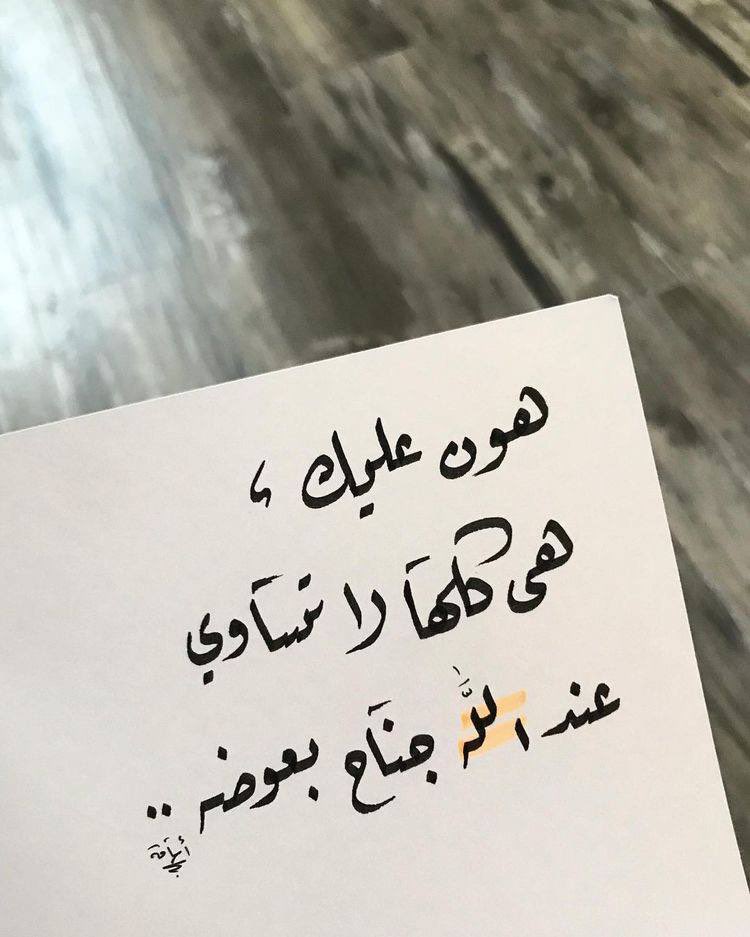 هون عليك ،
هي كلها لا تساوي
عند الله جناح بعوضه ..